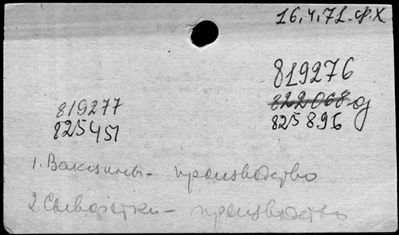 16.4.71.ф.Х
819276
822068 д
825896
819277
825451
1. Вакцины - производство
2 Сыворотки - производство